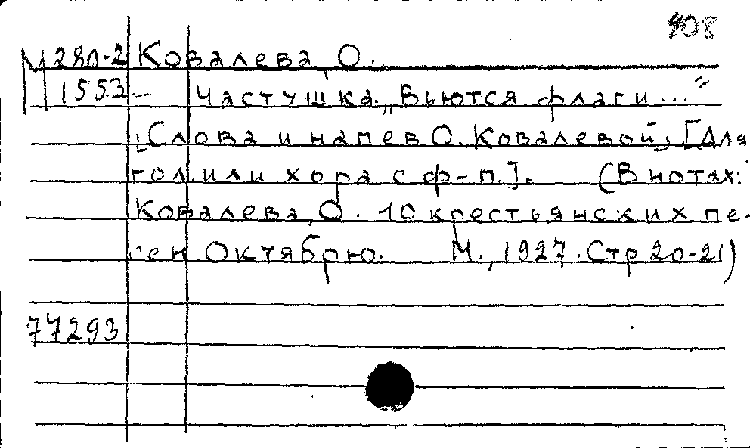 908
М 280-2 Ковалева, О.
1553 — Частушка „Вьются флаги..."
[Слова и напев О. Ковалевой, [Для
гол. или хора с ф-п.]. (В нотах:
Ковалева, О. 10 крестьянских пе-
сен Октябрю. М., 1927. Стр 20-21)
77293